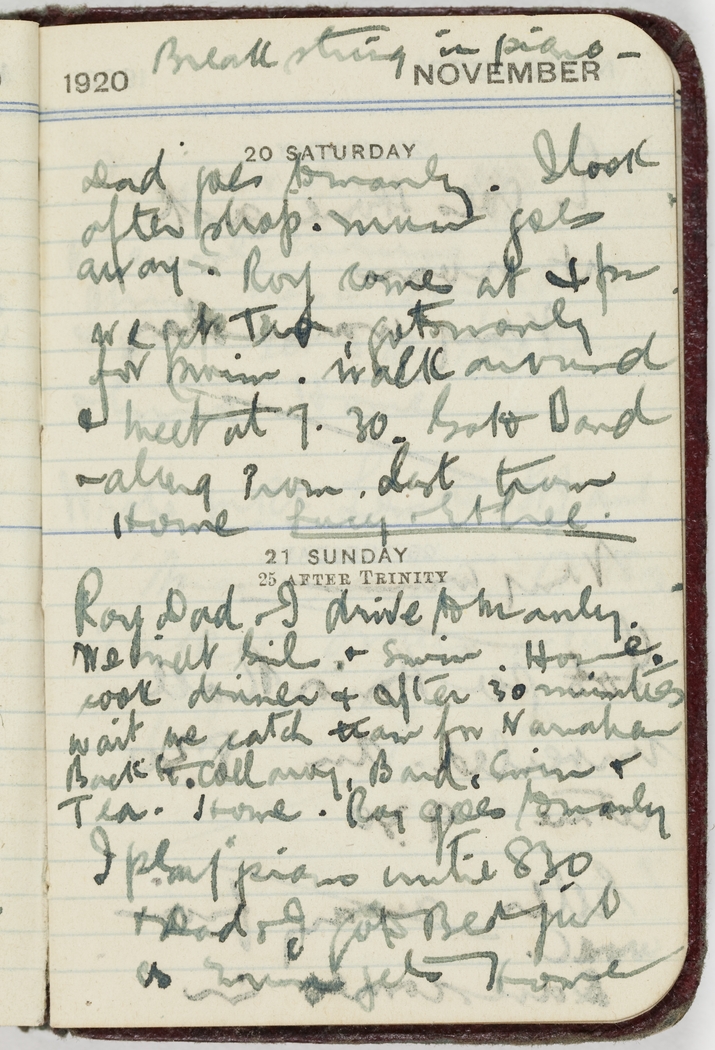 Break string in piano -
1920 NOVEMBER
20 SATURDAY
Dad goes to manly. I look
after shop. mum goes
away. Roy come at 4 pm.
we get Tea, go to manly
for swim. walk around
& meet at 7.30. Go to Band
& along Prom. Last tram
Home Lucy & Ethel.
21 SUNDAY
25 AFTER TRINITY
Roy Dad & I drive to Manly.
We meet & swim. Home.
cook dinner & after 30 minutes
wait we catch tram for Narraban
Back to Collaroy, Band, Swim &
Tea. Home. Roy goes to manly
I play piano until 830
& Dad & I go to Bed just
as mum gets Home